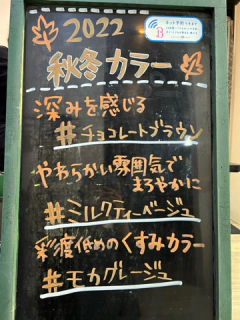 2022
秋冬カラー
深みを感じる
#チョコレートブラウン
やわらかい雰囲気で
まろやかに
#ミルクティーベージュ
彩度低めのくすみカラー
#モカグレージュ